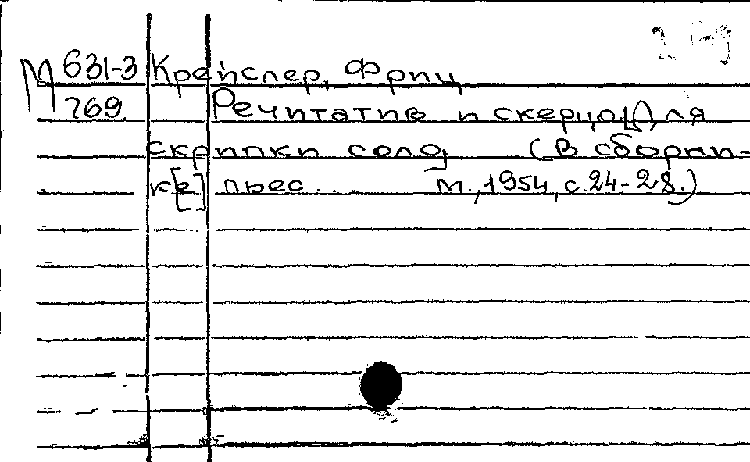 М 631-3 Крейслер, Фриц
769 Речитатив и скерцо[Д]ля
скрипки соло (В сборни-
к[е] пьес. М., 1954, с. 24-28.)